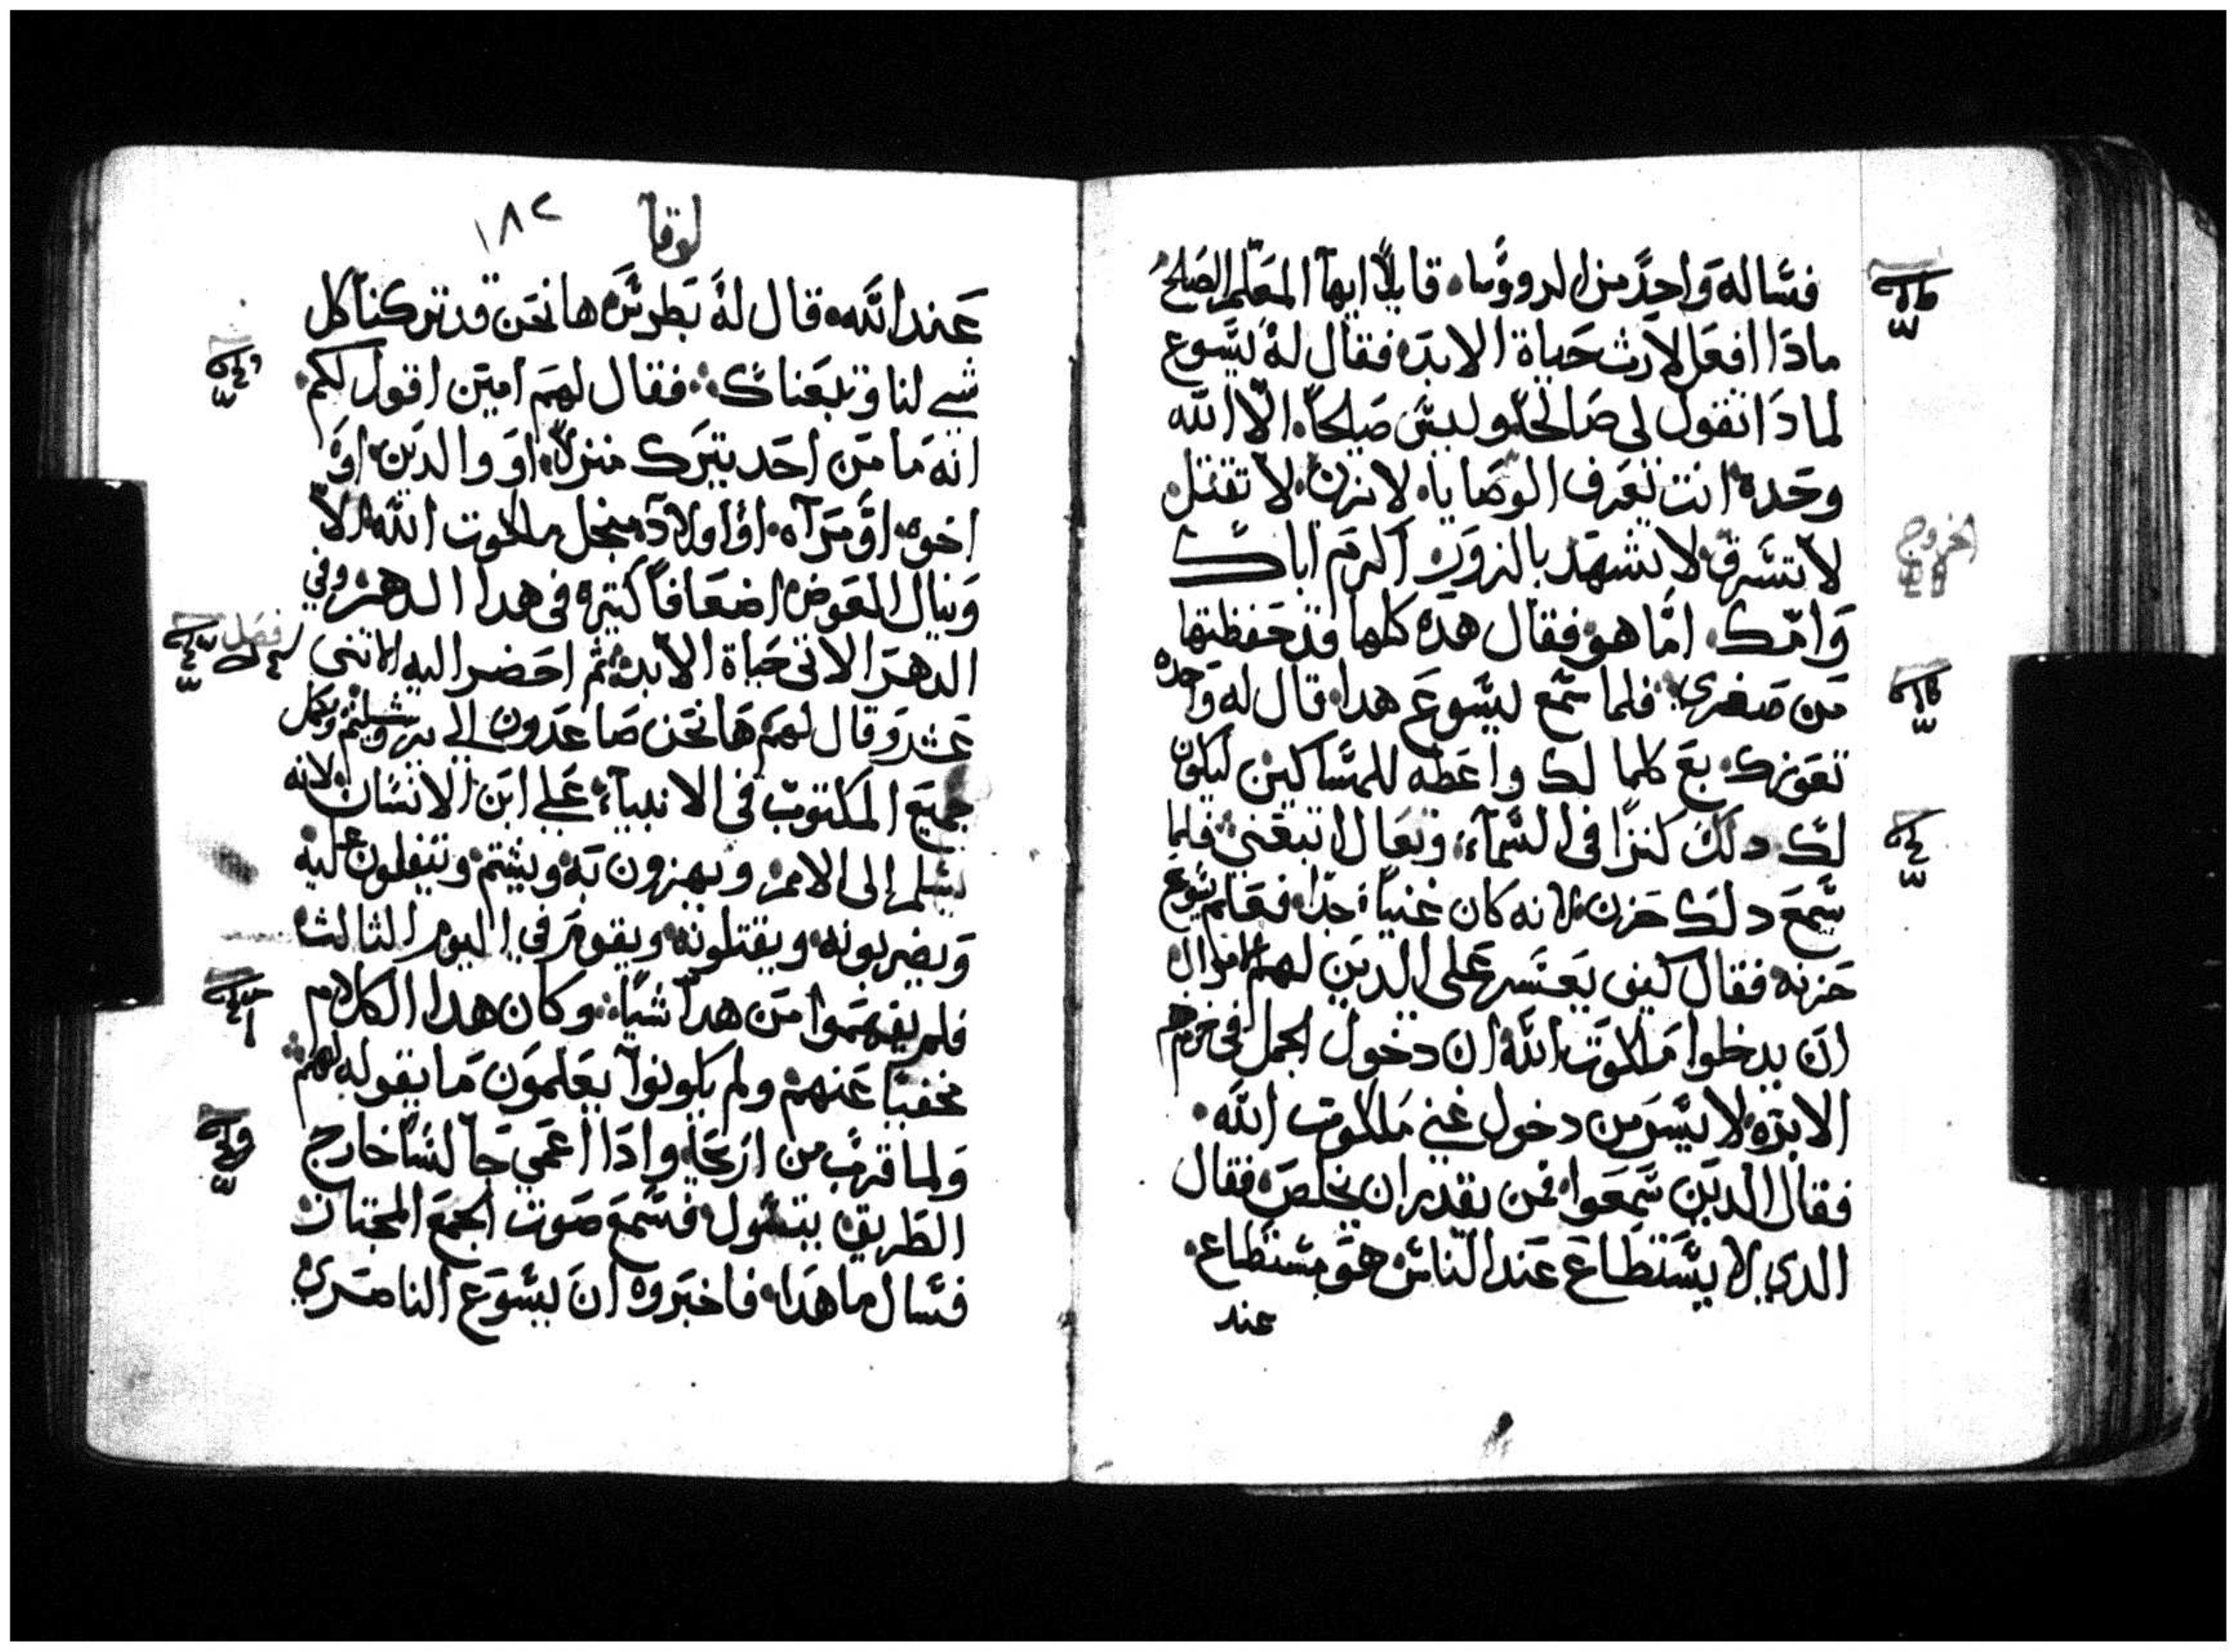 فسّاله وَاحِدً من الروؤسا، قايلاً ايها المعَلم الصَلحُ
مادَا افعَل لارث حَياة الابدَه فقال لهُ ليسَوع
لمادَا تقول لى صَالحًا وليسَ صَلحًا، الّا اللّه
وحَده انت تعَرف الوصَايا، لاتزن، لا تقتل،
لا تسَرق لا تشهَد بالزورَ، اكرَم اباك
وَامّك، امَّا هو فقال هده كلها قد حَفظتها
مَن صَغرى، فلما سَمع ليسَوعَ هدا، قال له وَاحده
تعَوزك، بعَ كلما لك واعَطه للمسَاكين ليكون
لكَ دلك كنزًا فى السَمآء، وتعَال اتبعَنى، فلما
سَمعَ دلكَ حَزن، لانه كان غنيًا، جدًا، فعَلم يسَوع
حَزنه فقال كيف يَعَسَر عَلى الدين لهم الاموال
انَ يدخلوا مَلكوَت اللّه، ان دخول الجمل فى خرم
الابرَه، لايسَرَ من دخول غنى مَلكوت اللّه،
فقال الديَن سَمِعَوا، فمن يقدر ان يخلصَ، فقال
الدي لا يسَتطَاعَ عَند النّاسَ هوَ مستطاع،
عند
الخروج
لوقا
١٨٢
عَند اللّه، قال لهُ بَطرسَ، ها نحَن قد تركنا كل
شي لنا وتبعَناك، فقال لهمَ امين اقول لكم،
انهَ مَا مَن احَد يترَك منزلا، اوَ والديَن، اوَ
اخوه، اوَ مَرآه، اؤ اولاد، منجل ملكوت اللّه، الاّ
وَينال العَوض، اضعَافاً كتيره فى هدا الدهر، وفي
الدهَرَ الاتى حَياة الابد، ثمَ احَضر اليه الاتنى
عَشرَ وقال لهمَ هَا نحَن صَاعَدون الى يروشليم، ويكمل
جميَع المكتوبَ فى الانبيآء، عَلى ابَن الانسَان، لانه
يسَلم إلى الامم، ويهزون بَه، ويشتم، ويتفلون عليه
وَيضربونه، ويقتلونه، ويقوم في اليوم الثالث
فلم يفهَموا مَن هداَ شيًا، وكان هدا الكلام
مخفيًا عَنهم، ولم يكونوا يعَلمَون مَا يقوله لهم
وَلما قربَ من ارَيحَا، وادَا اعَمي جَالسَا خارج
الطَريق، يتسَول، فسَمعَ صَوت الجمعَ المجتاز
فسَال ما هَدا، فاخبَروه انَ ليسَوَع الناصَري
فصَل